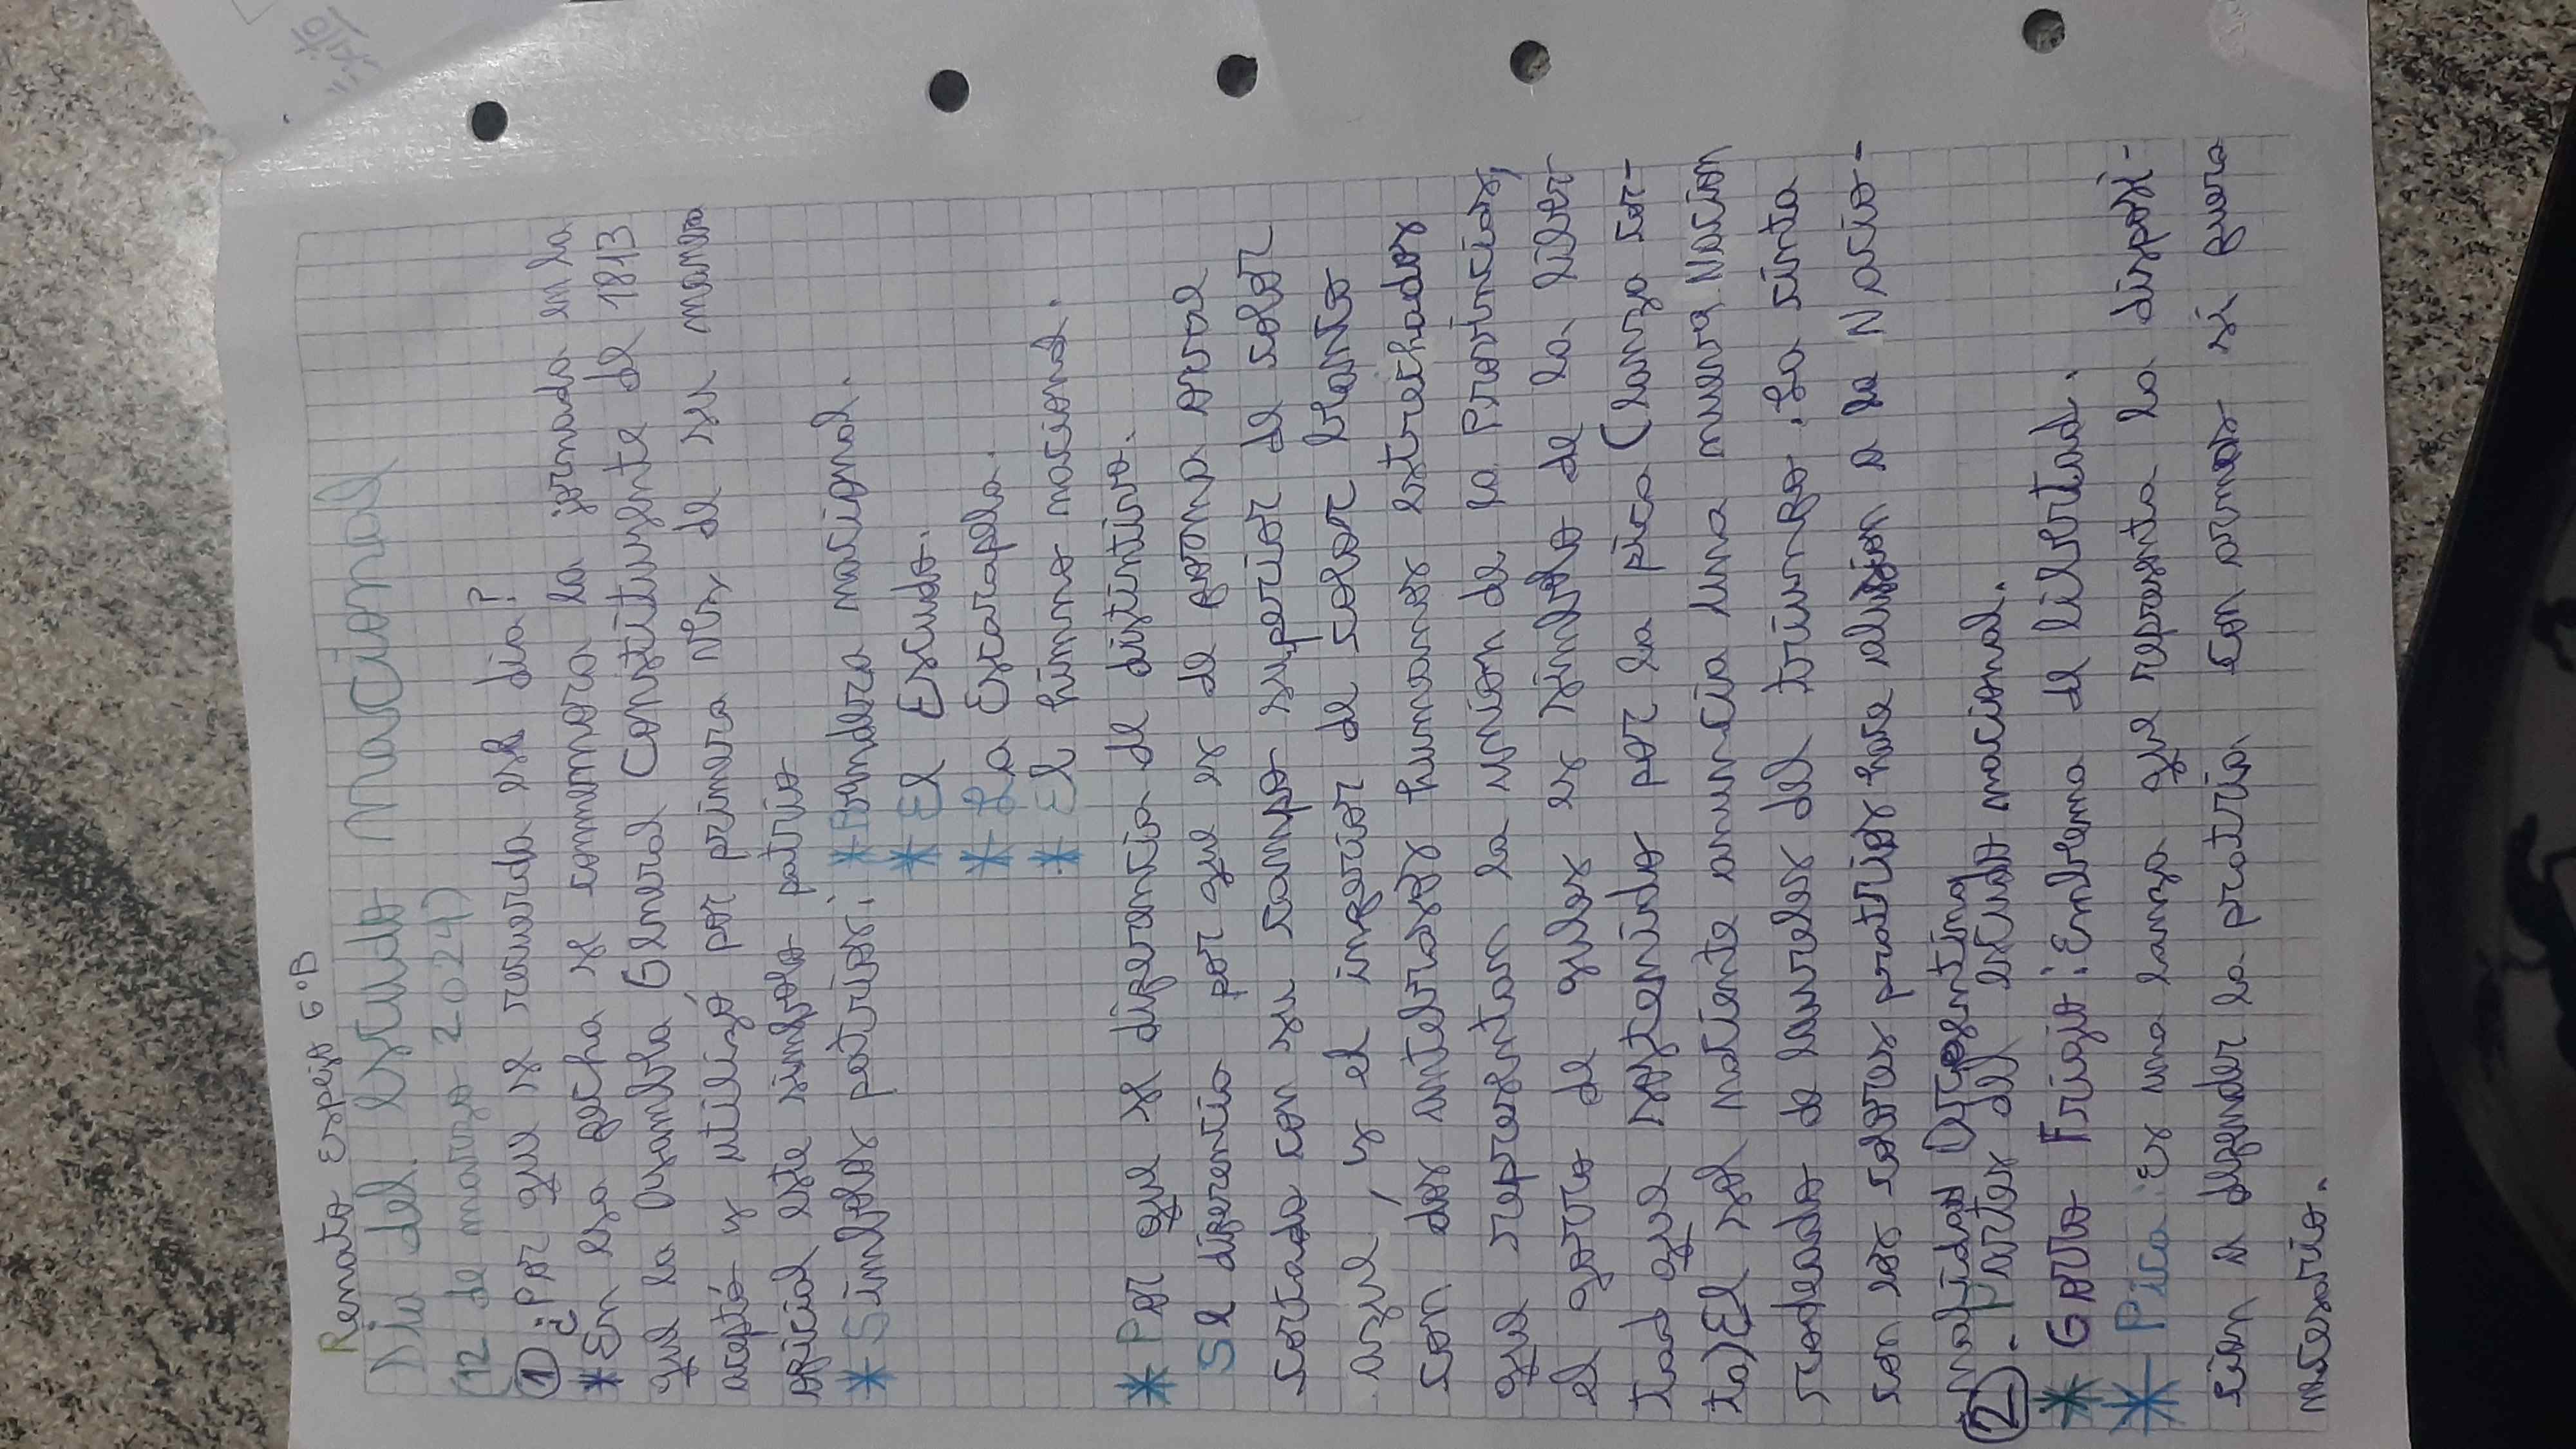 Renato Espejo 6°B
Dia del escudo nacional
(12 de marzo 2024)
① ¿Por que se recuerda ese dia?
* En esa fecha se conmemora la jornada en la
que la Asamblea General Constituyente del 1813
aceptó y utilizó por primera vez de su manera
oficial este simbolo patrio
* Simbolos patrios: * Bandera nacional.
* El Escudo.
* La Escarapela.
* El himno nacional.
* Por que se diferencia de distintivo.
Se diferencia por que es de forma oval
cortado con su campo superior de color
azul, y el inferior de color blanco
con dos antebrazos humanos estrechados
que representan la union de la Provincias,
el gorro de gules es simbolo de la liber
tad que sostenido por la pica (lanza cor-
ta) El sol naciente anuncia una nueva Nacion
rodeado de laureles del triunfo. La cinta
con los colores patrios hace alusion a la Nacio-
nalidad Argentina
②. Partes del escudo nacional.
* Gorro Frigio: Emblema de libertad.
* Pica: Es una lanza que representa la disposi-
cion a defender la patria con armas si fuera
necesario.
Éxito